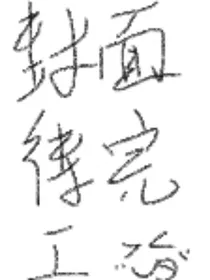 封面
待完
工